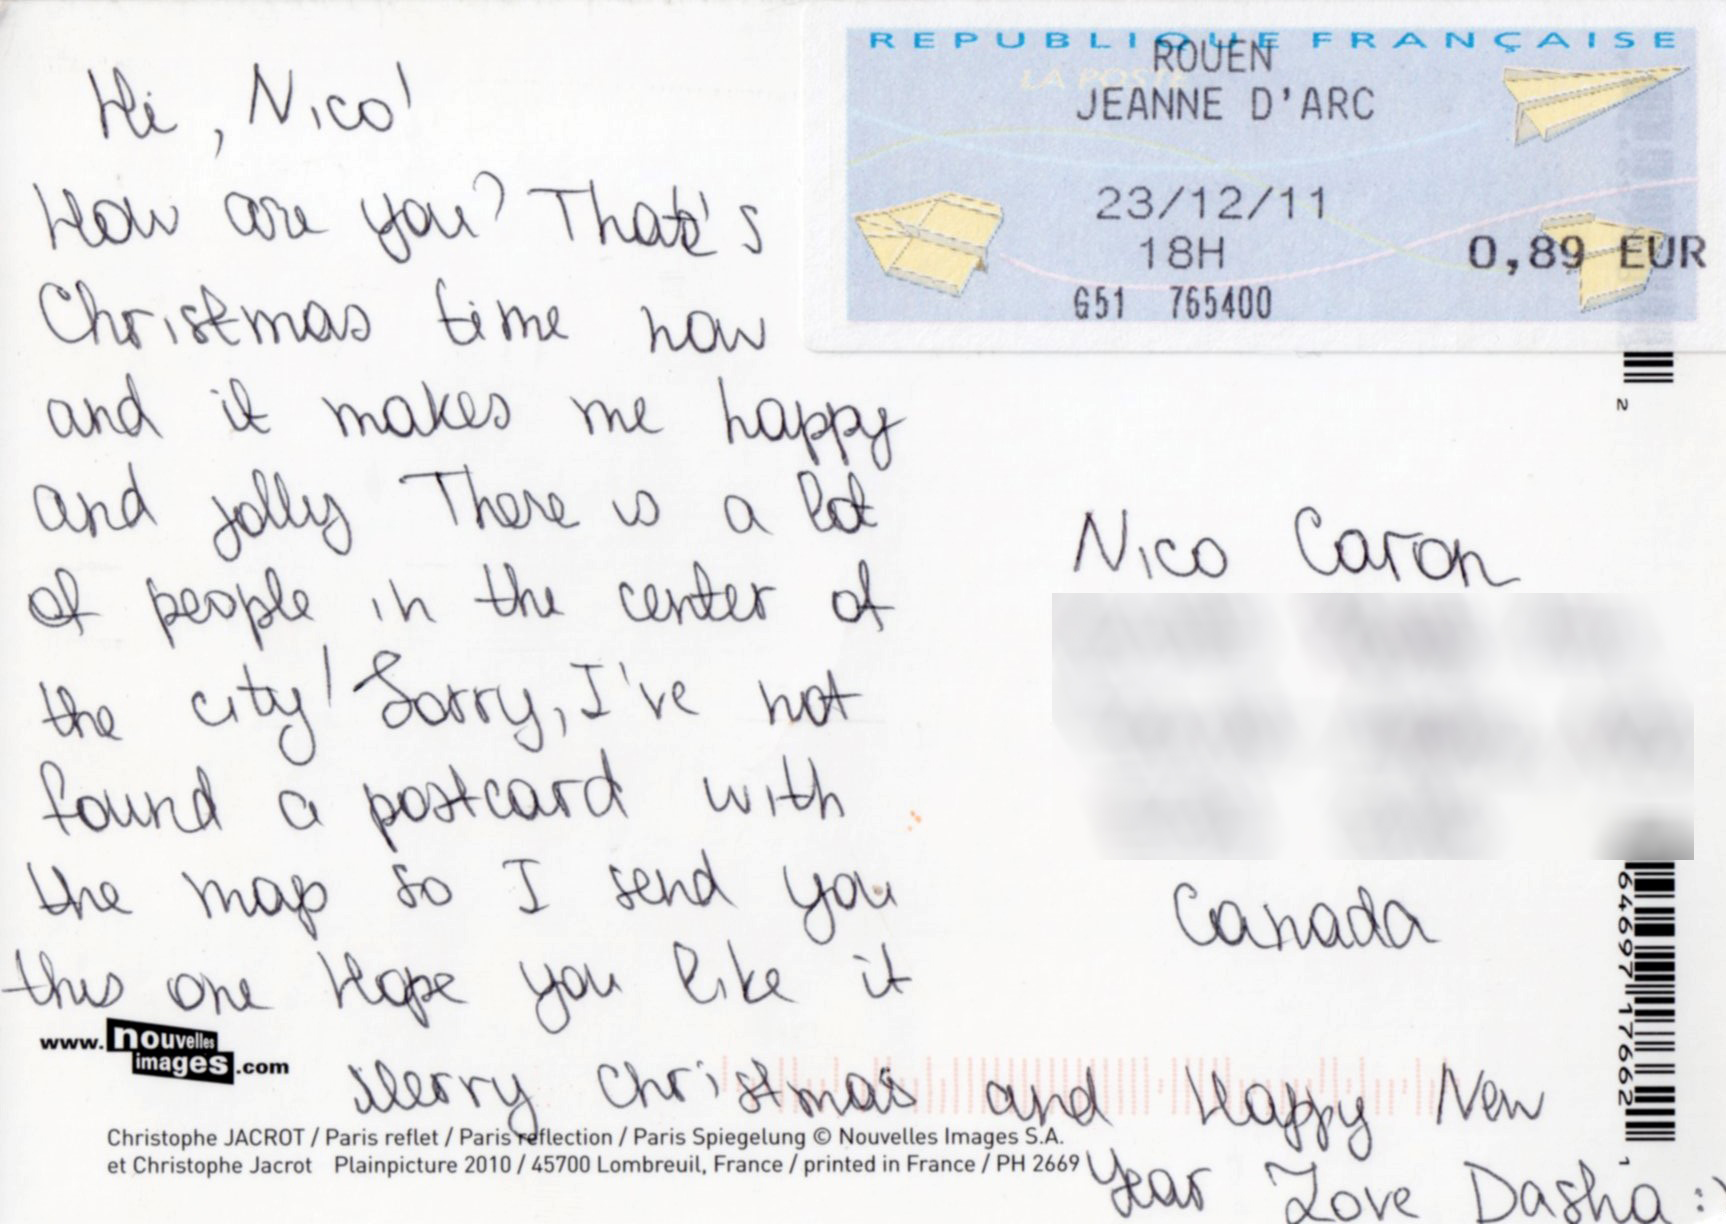 Hi, Nico!
How are you? That's
Christmas time now
and it makes me happy
and jolly There is a lot
of people in the center of
the city! Sorry, I've not
found a postcard with
the map so I send you
this one Hope you like it
Merry Christmas and Happy New
Year Love Dasha :)
REPUBLIQUE FRANÇAISE
LA POSTE
ROUEN
JEANNE D'ARC
23/12/11
18H
0,89 EUR
G51 765400
2
Nico Caron
Canada
64697 17662
1
www.nouvelles images.com
Christophe JACROT / Paris reflet / Paris reflection / Paris Spiegelung © Nouvelles Images S.A.
et Christophe Jacrot Plainpicture 2010 / 45700 Lombreuil, France / printed in France / PH 2669